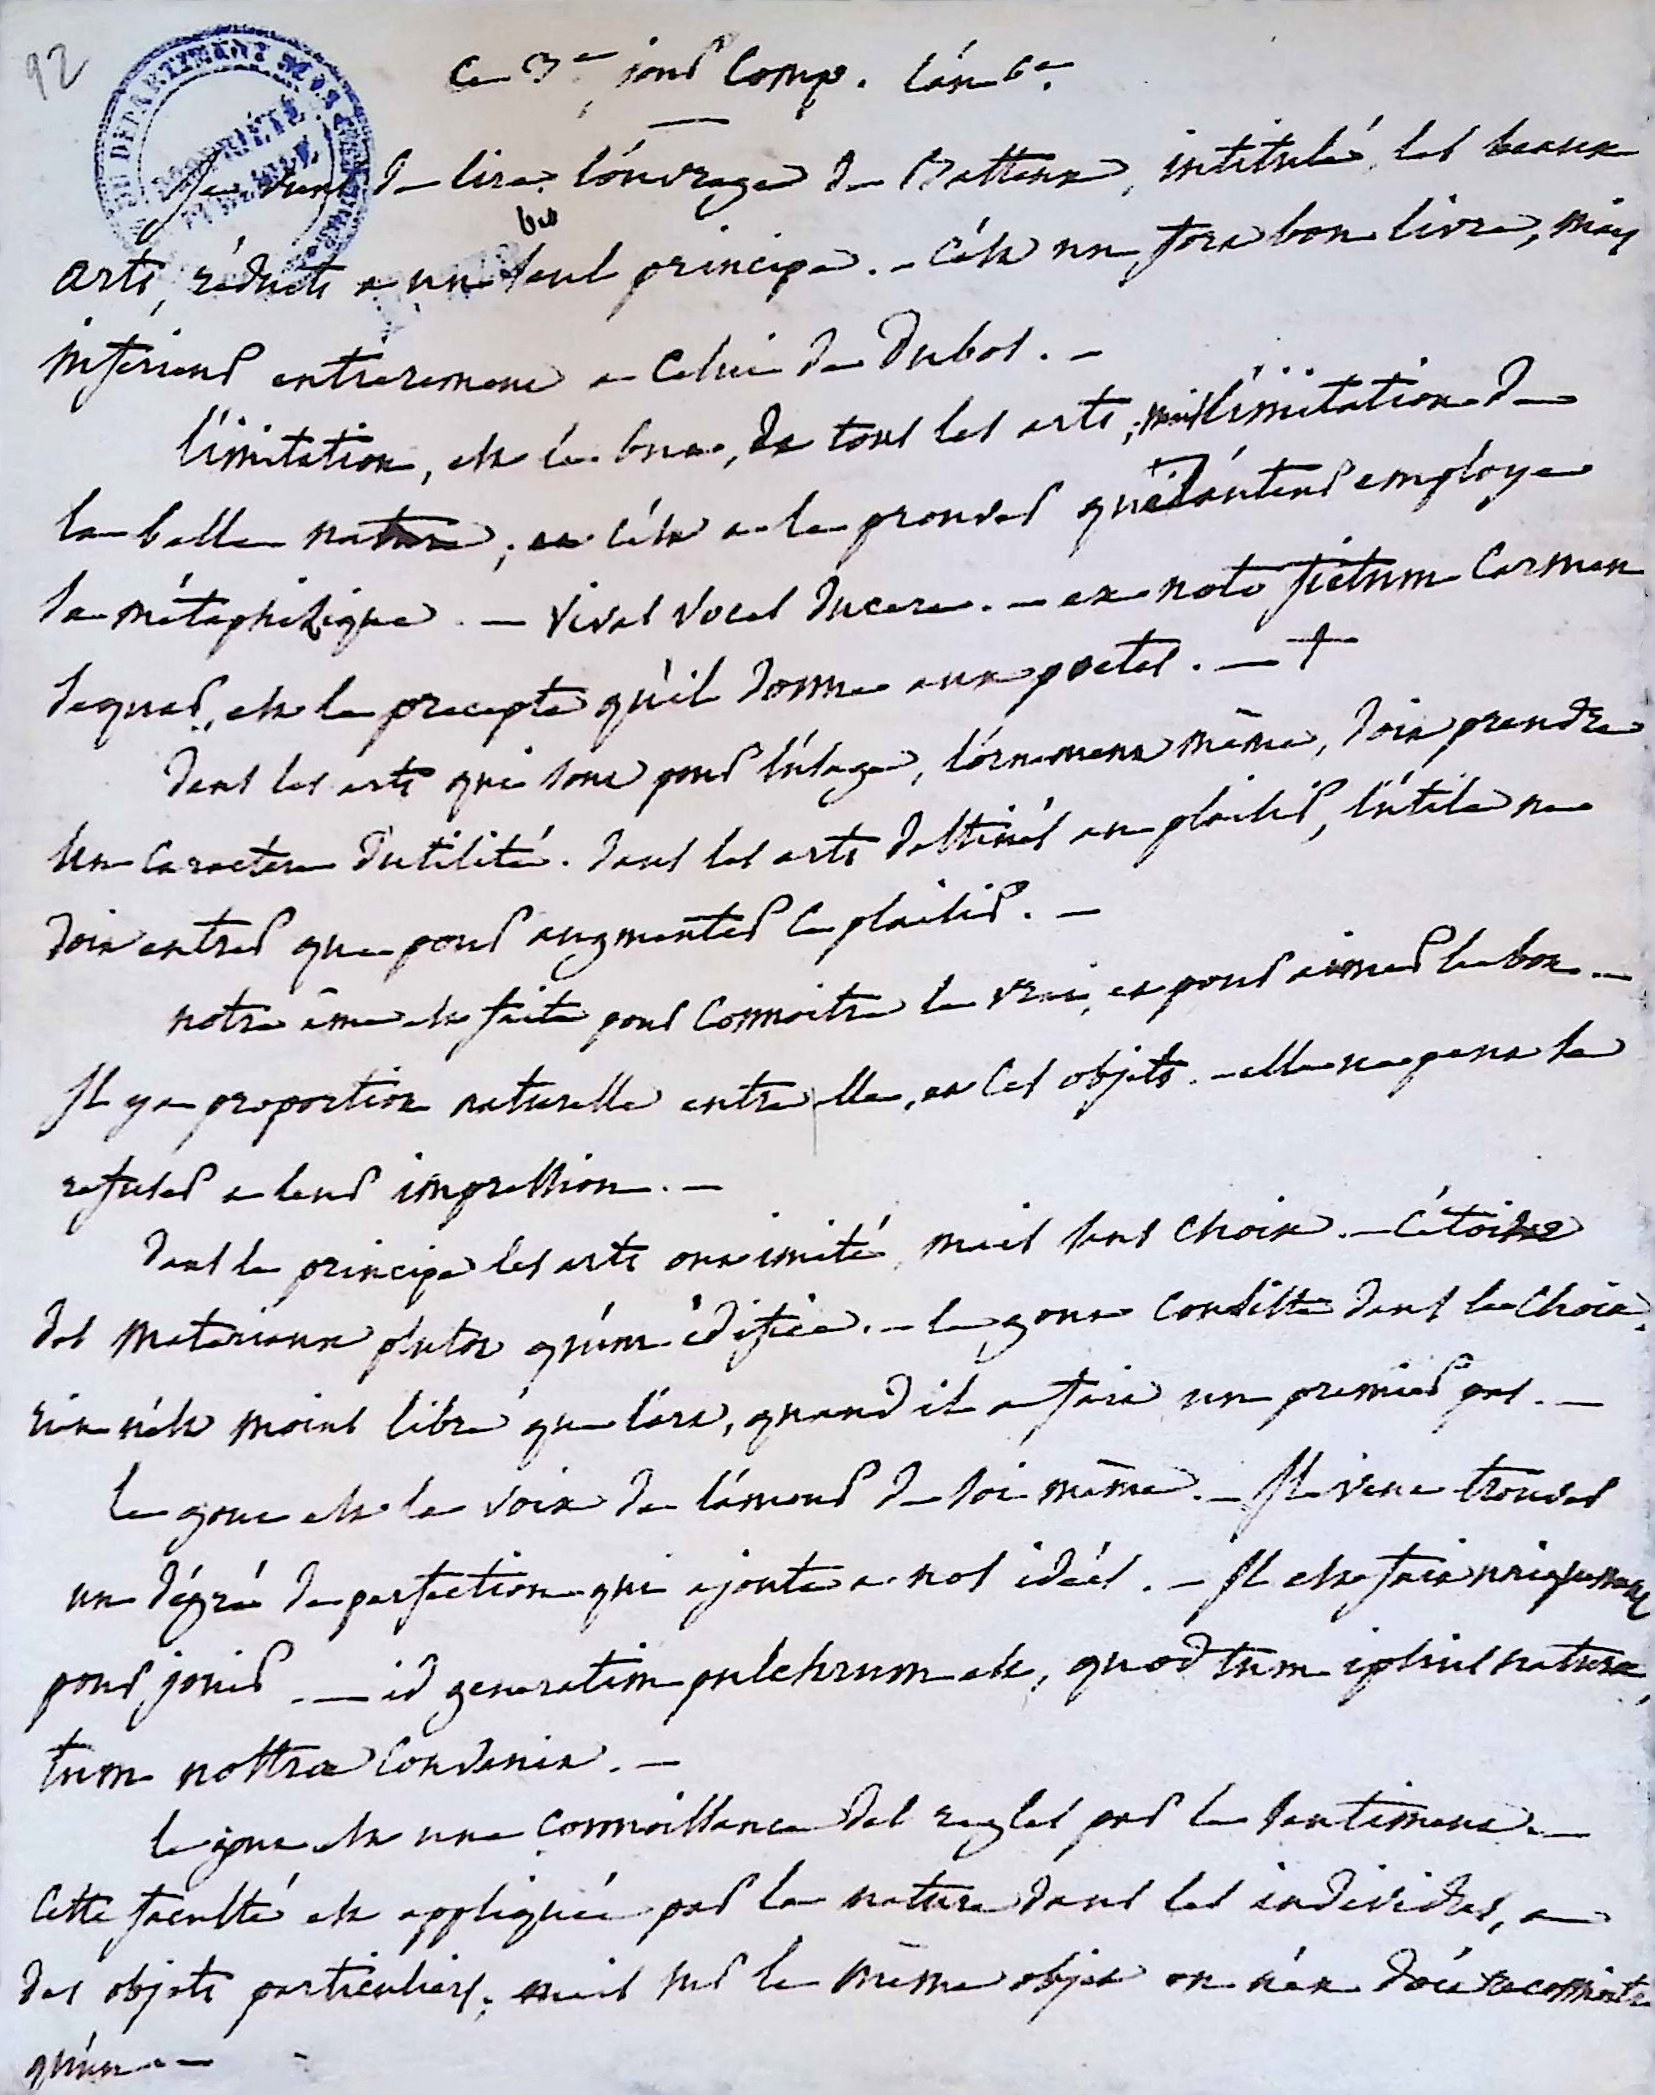 92
Ce 3e jour Comp. l'an 6e.
DU DÉPARTEMENT
PROPRIÉTÉ
PUBLIQUE
Je viens de lire l'ouvrage de Batteux, intitulé, les beaux
arts, réduits a un seul principe. - C'est un fort bon livre, mais
inferieur entierement a celui de Dubos. -
L'imitation, est le but, de tous les arts, mais l'imitation de
la belle nature; et c'est a le prouver que l'auteur employe
sa métaphisique. - vivas voces ducere. - ex noto fictum Carmen
sequar, est le precepte qu'il donne aux poetes. - +
Dans les arts qui sont pour l'usage, l'ornement même, doit prendre
un caractere d'utilité. dans les arts destinés au plaisir, l'utile ne
doit entrer que pour augmenter le plaisir. -
notre âme est faite pour connoitre le vrai, et pour aimer le bon. -
Il y a proportion naturelle entre elle, et ces objets. - elle ne peut se
refuser a leur impression. -
Dans le principe les arts ont imité, mais sans choix. - C'étoit
des materiaux plutot qu'un édifice. - le gout consiste dans le choix.
rien n'est moins libre que l'art, quand il a fait un premier pas. -
Le gout est la voix de l'amour de soi même. - Il veut trouver
un dégré de perfection qui ajoute a nos idées. - Il est fait uniquement
pour jouir. - id generatim pulchrum est, quod tum ipsius naturæ,
tum nostræ convenit. -
le gout est une connoissance des regles par le sentiment. -
Cette faculté est appliquée par la nature dans les individus, a
des objets particuliers; mais sur le même objet on n'en doit reconnoitre
qu'un. -